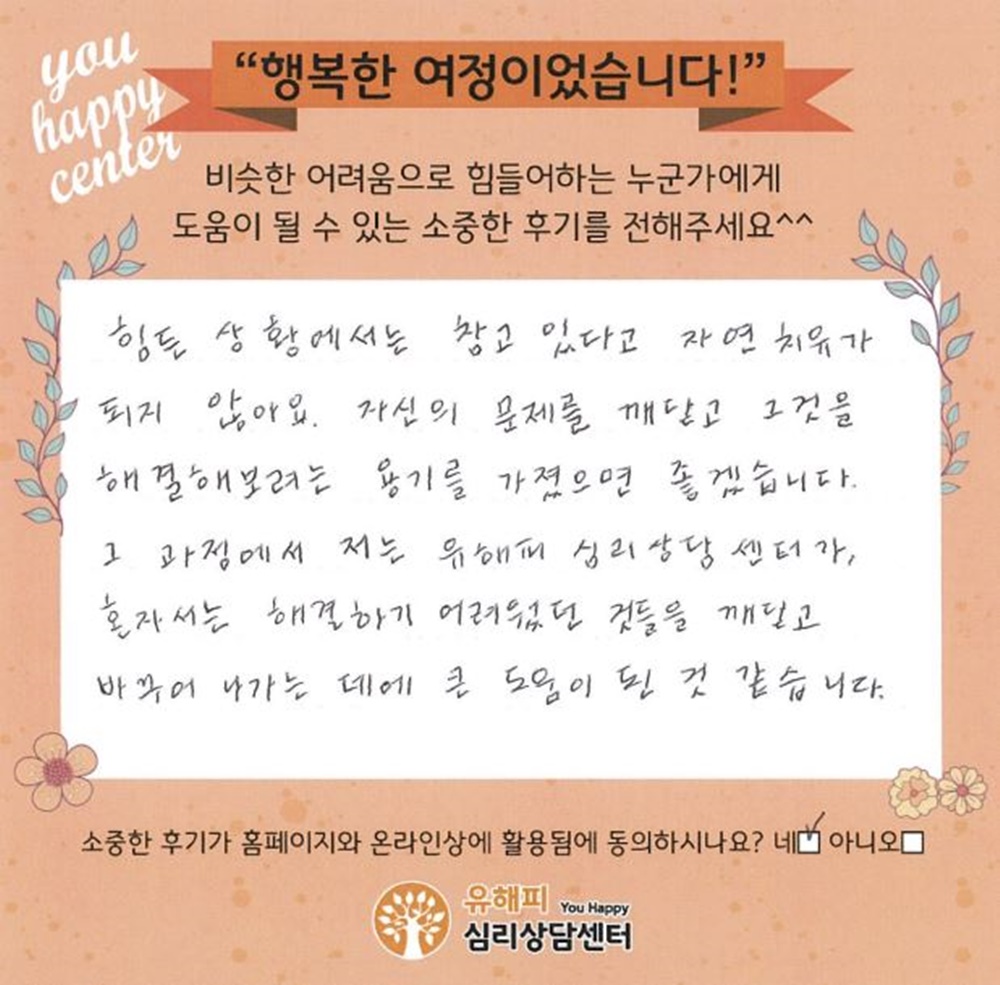 you
happy
center
“행복한 여정이었습니다!”
비슷한 어려움으로 힘들어하는 누군가에게
도움이 될 수 있는 소중한 후기를 전해주세요^^
힘든 상황에서는 참고 있다고 자연치유가
되지 않아요. 자신의 문제를 깨닫고 그것을
해결해보려는 용기를 가졌으면 좋겠습니다.
그 과정에서 저는 유해피 심리상담센터가,
혼자서는 해결하기 어려웠던 것들을 깨닫고
바꾸어 나가는 데에 큰 도움이 된 것 같습니다.
소중한 후기가 홈페이지와 온라인상에 활용됨에 동의하시나요? 네 아니오
유해피 You Happy
심리상담센터